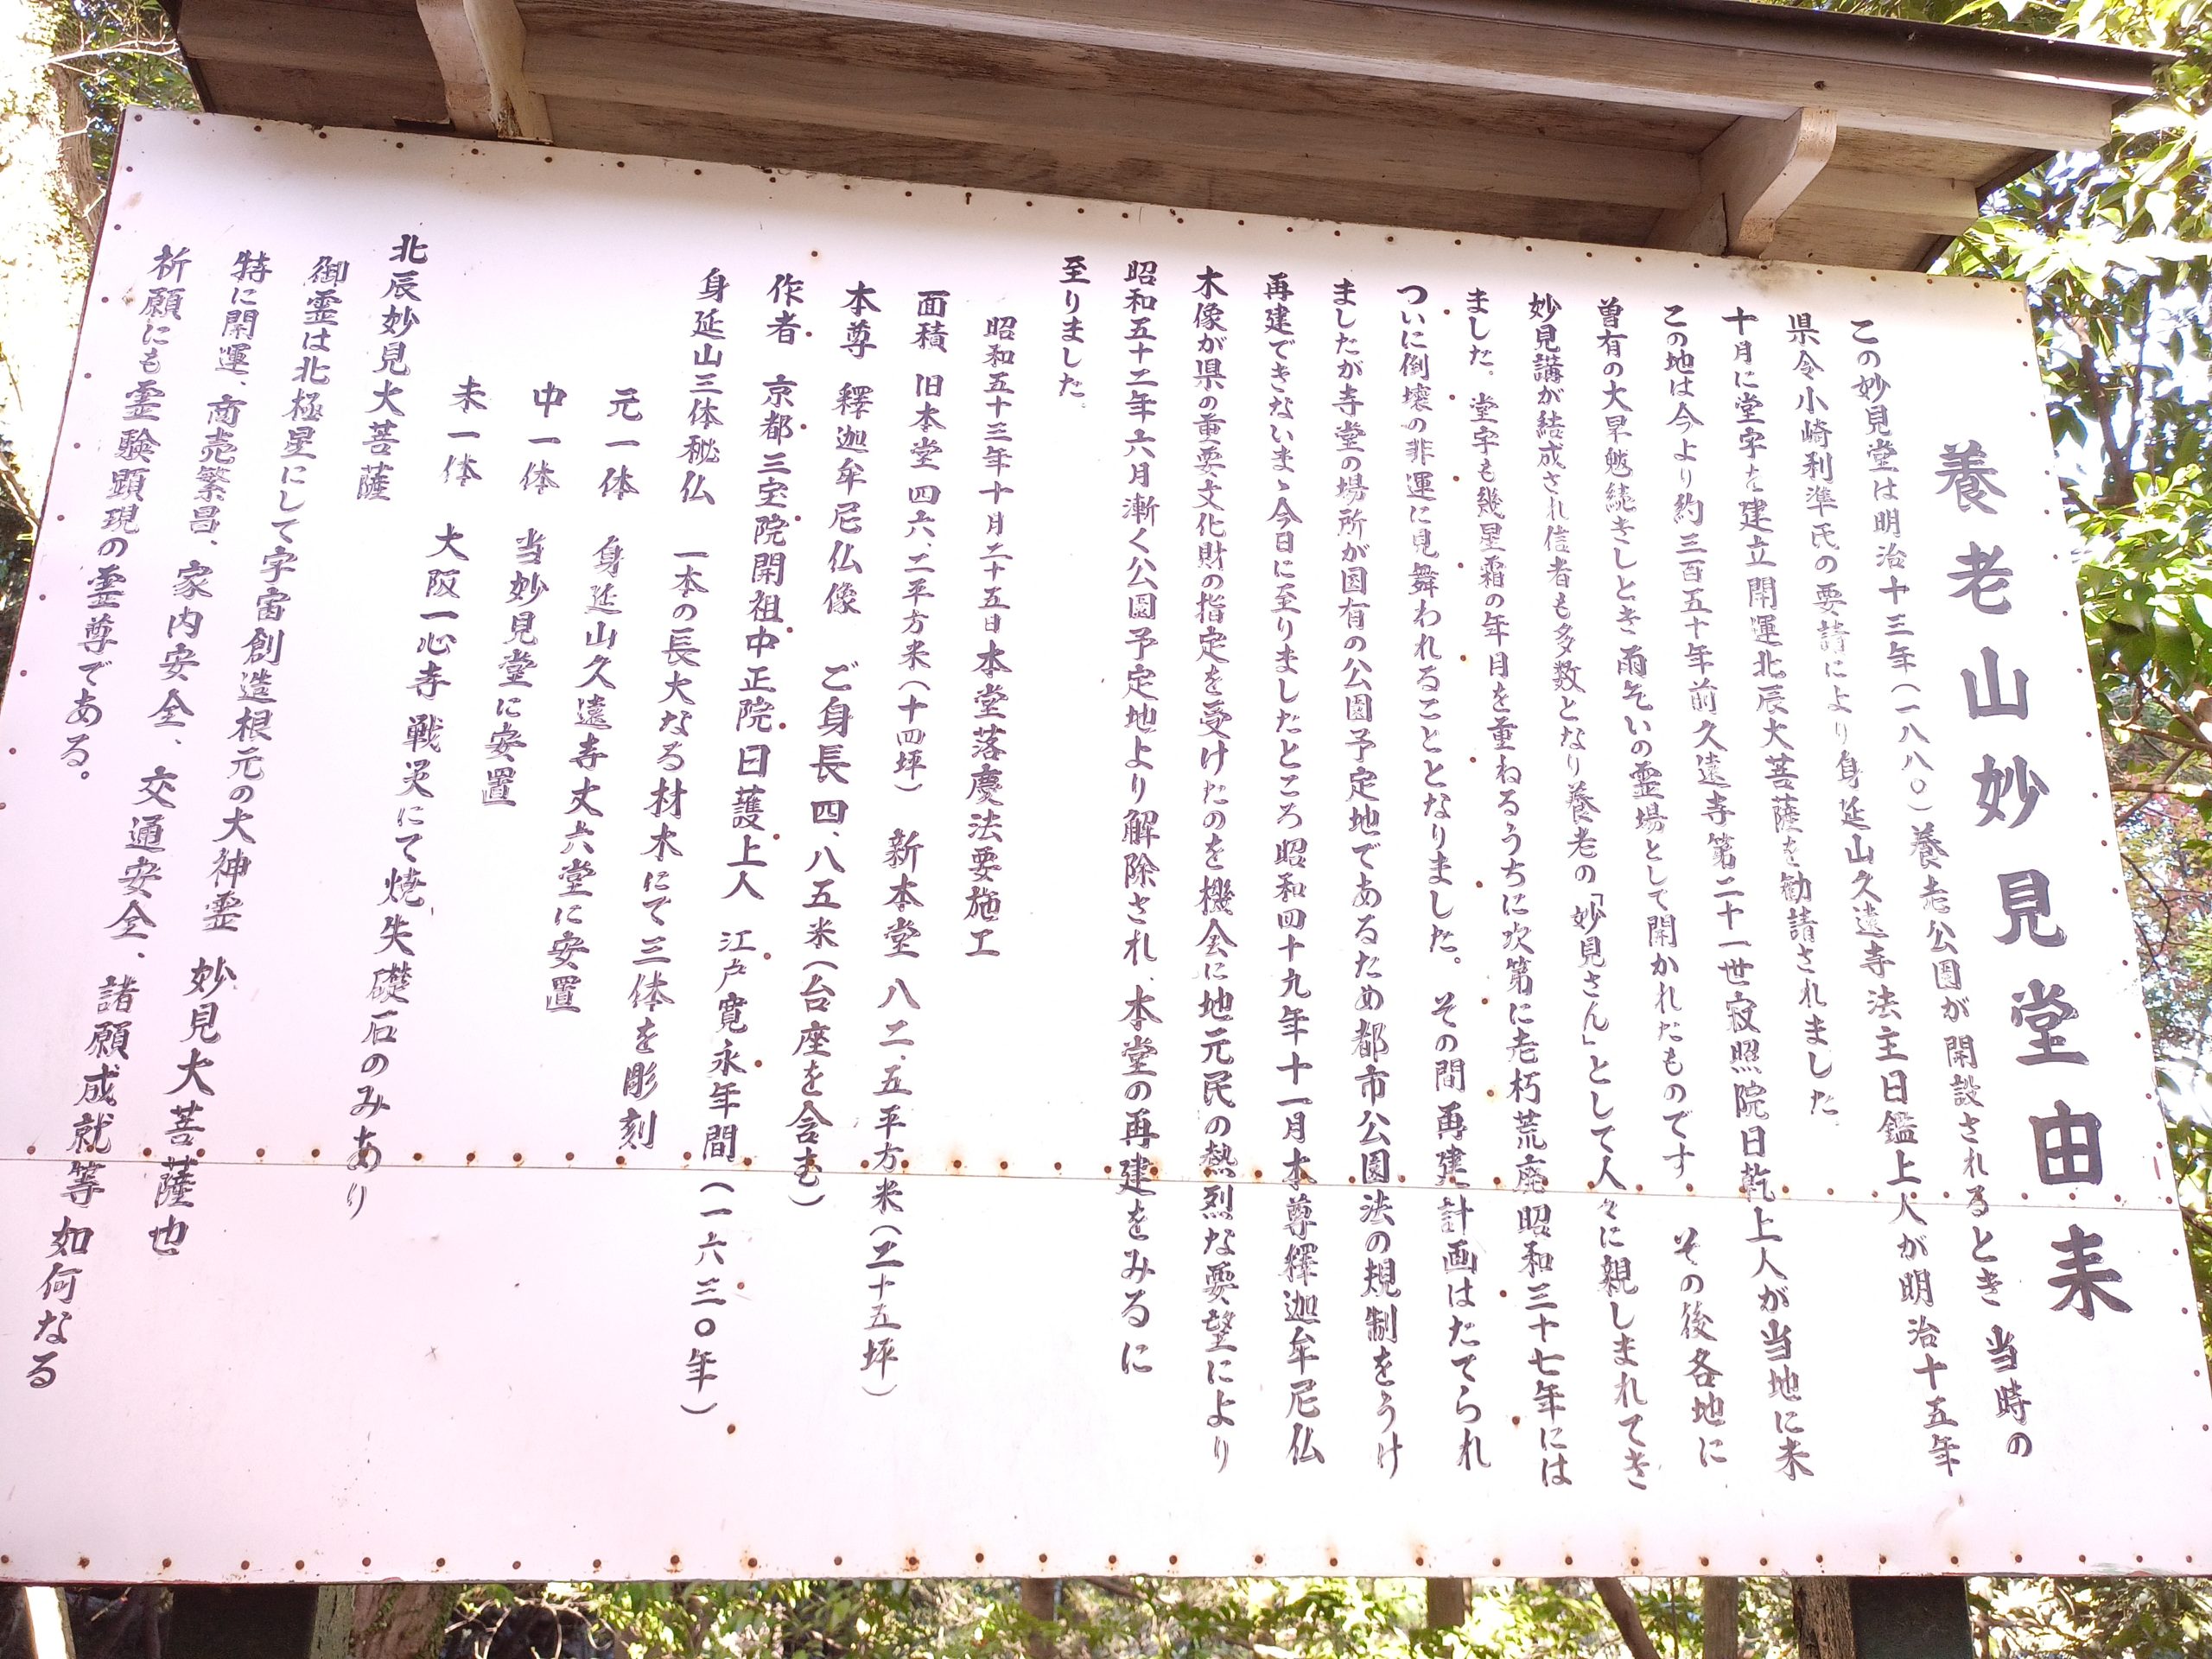 養老山妙見堂由来
この妙見堂は明治十三年(一八八〇)養老公園が開設されるとき当時の
県令小崎利準氏の要請により身延山久遠寺法主日鑑上人が明治十五年
十月に堂宇を建立開運北辰大菩薩を勧請されました。
この地は今より約三百五十年前久遠寺第二十一世寂照院日乾上人が当地に来
曽有の大旱魃続きしとき雨乞いの霊場として開かれたものです その後各地に
妙見講が結成され信者も多数となり養老の「妙見さん」として人々に親しまれてき
ました。堂宇も幾星霜の年月を重ねるうちに次第に老朽荒廃昭和三十七年には
ついに倒壊の非運に見舞われることとなりました。その間再建計画はたてられ
ましたが寺堂の場所が国有の公園予定地であるため都市公園法の規制をうけ
再建できないまゝ今日に至りましたところ昭和四十九年十一月本尊釋迦牟尼仏
木像が県の重要文化財の指定を受けたのを機会に地元民の熱烈な要望により
昭和五十二年六月漸く公園予定地より解除され、本堂の再建をみるに
至りました。
昭和五十三年十月二十五日本堂落慶法要施工
面積 旧本堂 四六、二平方米(十四坪) 新本堂 八二、五平方米(二十五坪)
本尊 釋迦牟尼仏像 ご身長四、八五米(台座を含む)
作者 京都三宝院開祖中正院日護上人 江戸寛永年間(一六三〇年)
身延山三体秘仏 一本の長大なる材木にて三体を彫刻
元一体 身延山久遠寺丈六堂に安置
中一体 当妙見堂に安置
末一体 大阪一心寺戦災にて焼失礎石のみあり
北辰妙見大菩薩
御霊は北極星にして宇宙創造根元の大神霊 妙見大菩薩也
特に開運、商売繁昌、家内安全、交通安全、諸願成就等如何なる
祈願にも霊験顕現の霊尊である。